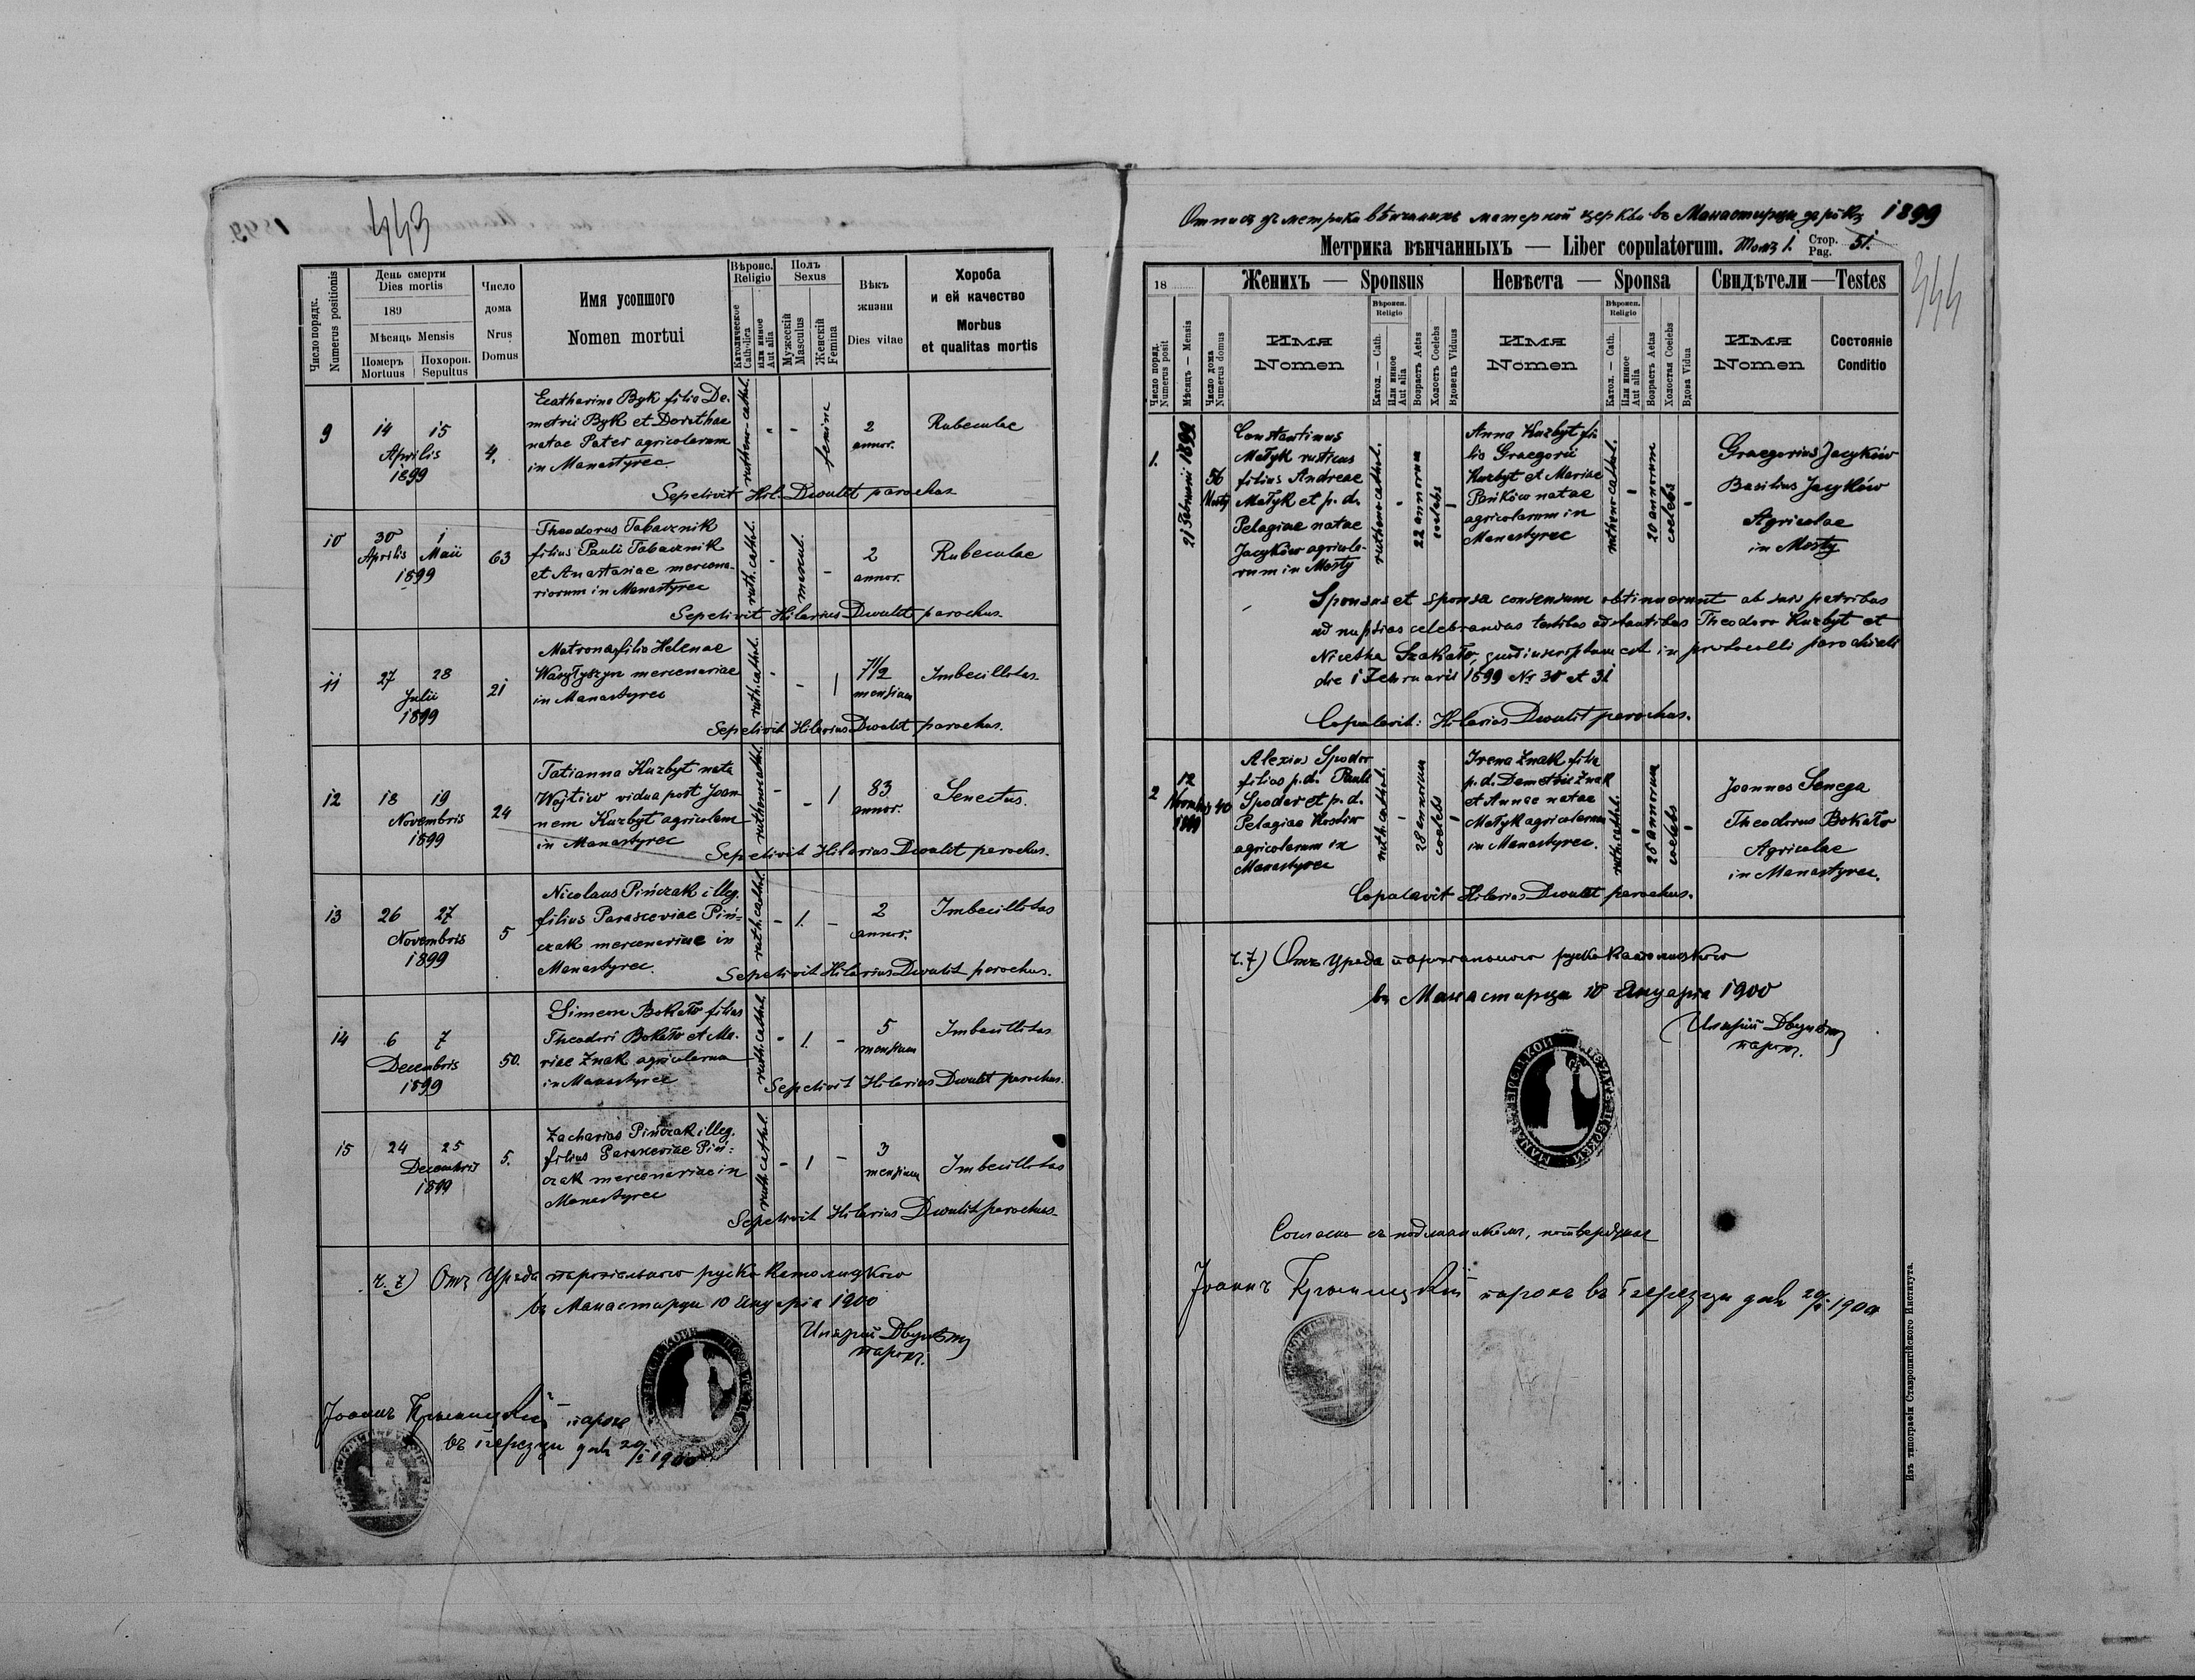 443
Число порядк. Numerus positionis
День смерти
Dies mortis
189
Мѣсяць Mensis
Померъ Mortuus
Похорон. Sepultus
Число дома
Nrus Domus
Имя усопшого
Nomen mortui
Вѣроис. Religio
Католическое Catholica
или инное Aut alia
Полъ Sexus
Мужескій Masculus
Женскій Femina
Вѣкъ жизни
Dies vitae
Хороба
и ей качество
Morbus
et qualitas mortis
9
14 15
Aprilis
1899
4.
Ecatharina Byk filia De-
metrii Byk et Dorothae
natae Pater agricolarum
in Manastyrec
rutheno-cathol.
femina
2
annor.
Rubeculae
Sepelivit Hil. Dwulit parochus
10
30 1
Aprilis Maii
1899
63
Theodorus Tabacznik
filius Pauli Tabacznik
et Anastasiae mercena-
riorum in Manastyrec
ruth. cathol.
mascul.
2
annor.
Rubeculae
Sepelivit Hilarius Dwulit parochus.
11
27 28
Julii
1899
21
Matrona filia Helenae
Wasyłyszyn mercenariae
in Manastyrec
ruth. cathol.
7 1/2
mensium
Imbecillitas
Sepelivit Hilarius Dwulit parochus.
12
18 19
Novembris
1899
24
Tatianna Kuzbyt nata
Wojtiw vidua post Joan-
nem Kuzbyt agricolam
in Manastyrec
83
annor.
Senectus.
Sepelivit Hilarius Dwulit parochus.
13
26 27
Novembris
1899
5
Nicolaus Pińczak illeg.
filius Parasceviae Piń-
czak mercenariae in
Manastyrec.
ruth. cathol.
1.
2
annor.
Imbecillitas
Sepelivit Hilarius Dwulit parochus.
14
6 7
Decembris
1899
50.
Simeon Bokało filius
Theodori Bokało et Ma-
riae Znak agricolarum
in Manastyrec
ruth. cathol.
1.
5
mensium
Imbecillitas
Sepelivit Hilarius Dwulit parochus.
15
24 25
Decembris
1899
5.
Zacharias Pińczak illeg.
filius Parasceviae Piń-
czak mercenariae in
Manastyrec
ruth. cathol.
1
3
mensium
Imbecillitas
Sepelivit Hilarius Dwulit parochus.
Отъ Уряда парохіального руско католицкого
въ Манастирци 10 Януарія 1900
Иларій Двулѣт
парох.
Іоаннъ парохъ
въ дня 20/I 1900
въ Манастирци за рôкъ 1899
Метрика вѣнчанныхъ — Liber copulatorum. Томъ I. Стор. Pag. 51.
344
18
Женихъ — Sponsus
Невѣста — Sponsa
Свидѣтели — Testes
Число поряд. Numerus posit
Мѣсяць — Mensis
Число дома Numerus domus
Имя
Nomen
Вѣроисп. Religio
Катол. — Cath.
Или инное Aut alia
Возрастъ Aetas
Холостъ Coelebs
Вдовецъ Viduus
Имя
Nomen
Вѣроисп. Religio
Катол. — Cath.
Или инное Aut alia
Возрастъ Aetas
Холостая Coelebs
Вдова Vidua
Имя
Nomen
Состояніе
Conditio
1.
21 Februarii 1899
56
Mosty
Constantinus
Małyk rusticus
filius Andreae
Małyk et p. d.
Pelagiae natae
Jacyków agricola-
rum in Mosty
rutheno-cathol.
22 annorum
coelebs
Anna Kuzbyt fi-
lia Graegorii
Kuzbyt et Mariae
Pańków natae
agricolarum in
Manastyrec
rutheno-cathol.
20 annorum
coelebs
Graegorius Jacyków
Basilius Jacyków
Agricolae
in Mosty
Sponsus et sponsa consensum obtinuerunt ab suis patribus
ad nuptias celebrandas testibus adstantibus Theodoro Kuzbyt et
Nicetha Szakało, quod inscriptum est in protocolli parochiali
die 1 Februarii 1899 Nr 30 et 31
Copulavit: Hilarius Dwulit parochus.
2
12
1899
40
Alexius Spodar
filius p.d. Pauli
Spodar et p.d.
Pelagiae Kostiw
agricolarum in
Manastyrec
ruth. cathol.
28 annorum
coelebs
Irena Znak filia
p.d. Demetrii Znak
et Annae natae
Małyk agricolarum
in Manastyrec.
ruth. cathol.
25 annorum
coelebs
Joannes Senega
Theodorus Bokało
Agricolae
in Manastyrec.
Copulavit Hilarius Dwulit parochus.
Отъ Уряда парохіального руско католицкого
въ Манастирци 10 Януарія 1900
Иларій Двулѣт
парох.
Іоаннъ парохъ въ дня 20/I 1900
Изъ типографіи Ставропигійского Института.